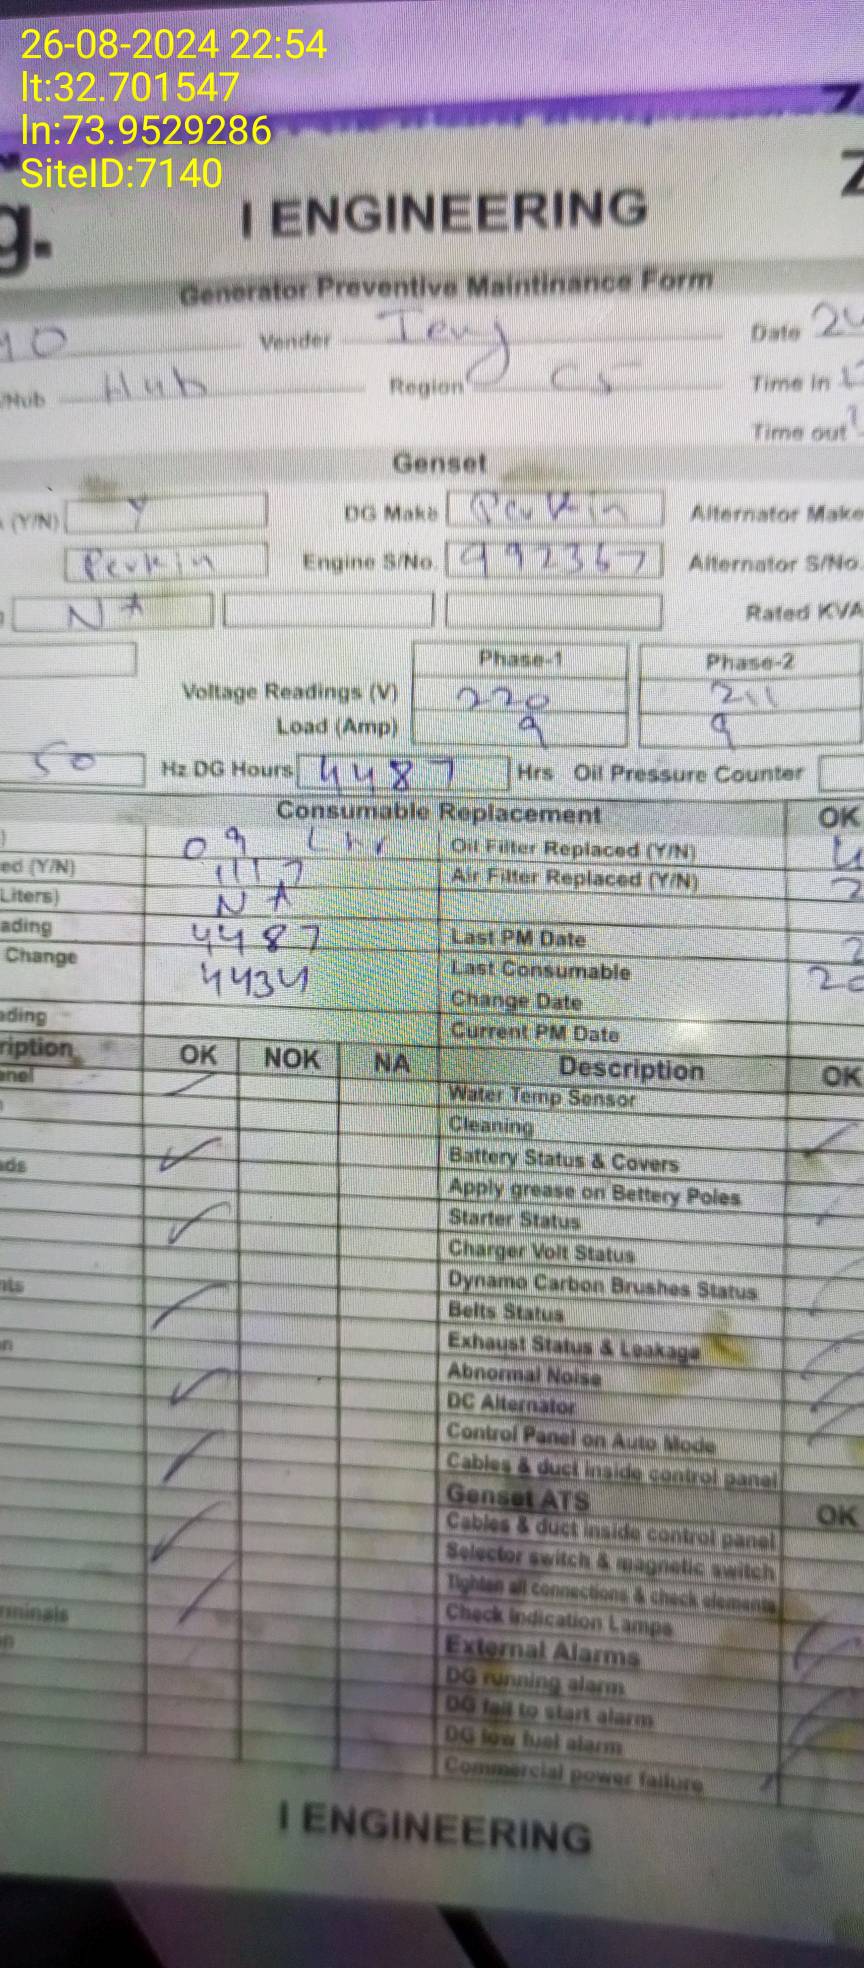 26-08-2024 22:54
lt:32.701547
ln:73.9529286
SiteID:7140
g. I ENGINEERING Z
Generator Preventive Maintinance Form
40 Vender Date
/Hub Hub Region C5 Time In
Time out
Genset
(Y/N) Y DG Make Perkin Alternator Make
Perkin Engine S/No. 992367 Alternator S/No.
NA Rated KVA
Phase-1 Phase-2
Voltage Readings (V) 220 211
Load (Amp) 9 9
50 Hz DG Hours 4487 Hrs Oil Pressure Counter
Consumable Replacement OK
09 Oil Filter Replaced (Y/N)
ed (Y/N) Air Filter Replaced (Y/N)
Liters) NA
ading 4487 Last PM Date
Change 4434 Last Consumable
Change Date
ading Current PM Date
ription OK NOK NA Description OK
anel Water Temp Sensor
Cleaning
Battery Status & Covers
ads Apply grease on Bettery Poles
Starter Status
Charger Volt Status
Dynamo Carbon Brushes Status
nts Belts Status
Exhaust Status & Leakage
n Abnormal Noise
DC Alternator
Control Panel on Auto Mode
Cables & duct inside control panel
Genset ATS OK
Cables & duct inside control panel
Selector switch & magnetic switch
Tighten all connections & check elements
Check Indication Lamps
rminals External Alarms
n DG running alarm
DG fail to start alarm
DG low fuel alarm
Commercial power failure
I ENGINEERING